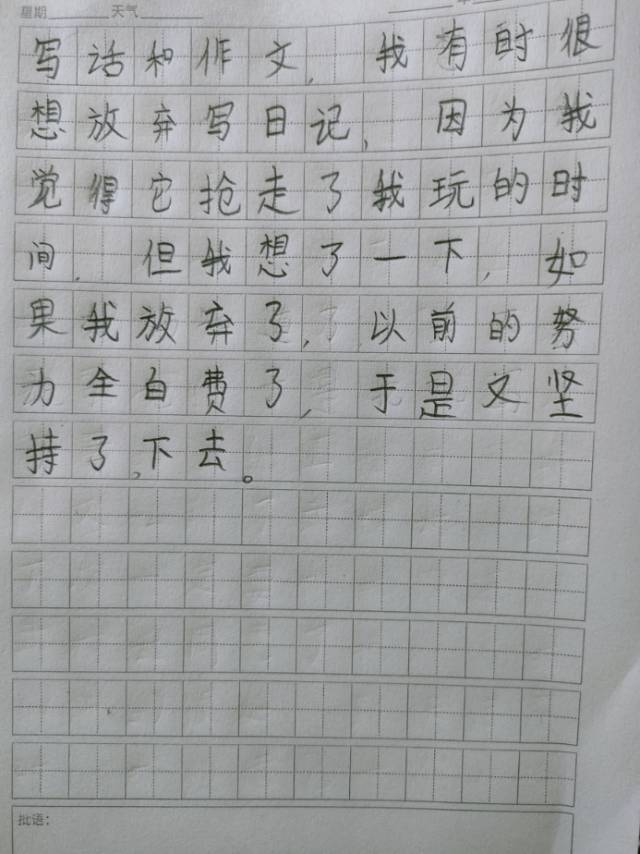 星期 天气
写话和作文，我有时很
想放弃写日记，因为我
觉得它抢走了我玩的时
间，但我想了一下，如
果我放弃了，以前的努
力全白费了，于是又坚
持了，下去。
批语：